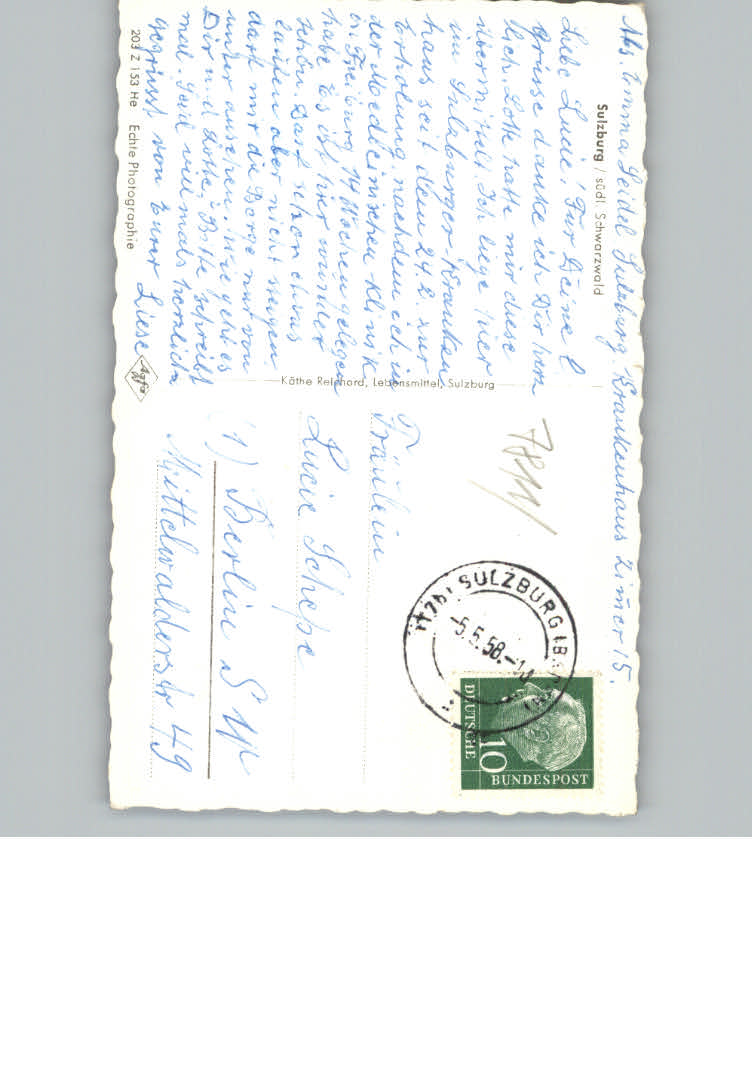 Abs. Emma Seidel Sulzburg. Krankenhaus Zimmer 15.
Sulzburg / südl. Schwarzwald
Liebe Lucie! Für Deine l
Grüsse danke ich Dir herz
lich. Lotte hatte mir diese
übermittelt. Ich liege hier
im Sulzburger Kranken
haus seit dem 24. 2. zur
Erholung, nachdem ich in
der Medizinischen Klinik
in Freiburg 14 Wochen gelegen
habe. Es ist hier wunder
schön. Darf schon etwas
laufen aber nicht steigen
darf mir die Berge nur von
unten ansehen. Wie geht es
Dir u. d. Lotte? Bitte schreibt
mal. Seid vielmals herzlich
gegrüsst von Eurer Liese
203 Z 153 He Echte Photographie
Agfa
Käthe Reinhord, Lebensmittel, Sulzburg
Fräulein
Lucie Schepe
(1) Berlin SW
Mittelwalderstr 49
SULZBURG
-5.5.58.-
10
DEUTSCHE
BUNDESPOST